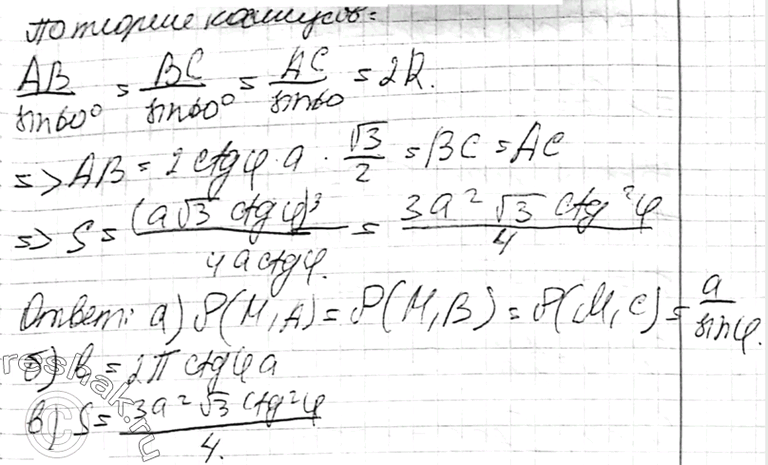 По теореме косинусов:
AB/sin60° = BC/sin60° = AC/sin60 = 2R.
=> AB = 2ctgφ·a·√3/2 = BC = AC
=> S = (a√3 ctgφ)³/4actgφ. = 3a²√3 ctg²φ/4
Ответ: а) P(M,A) = P(M,B) = P(M,C) = a/sinφ.
б) в = 2π ctgφa
в) S = 3a²√3 ctg²φ/4.
reshak.ru